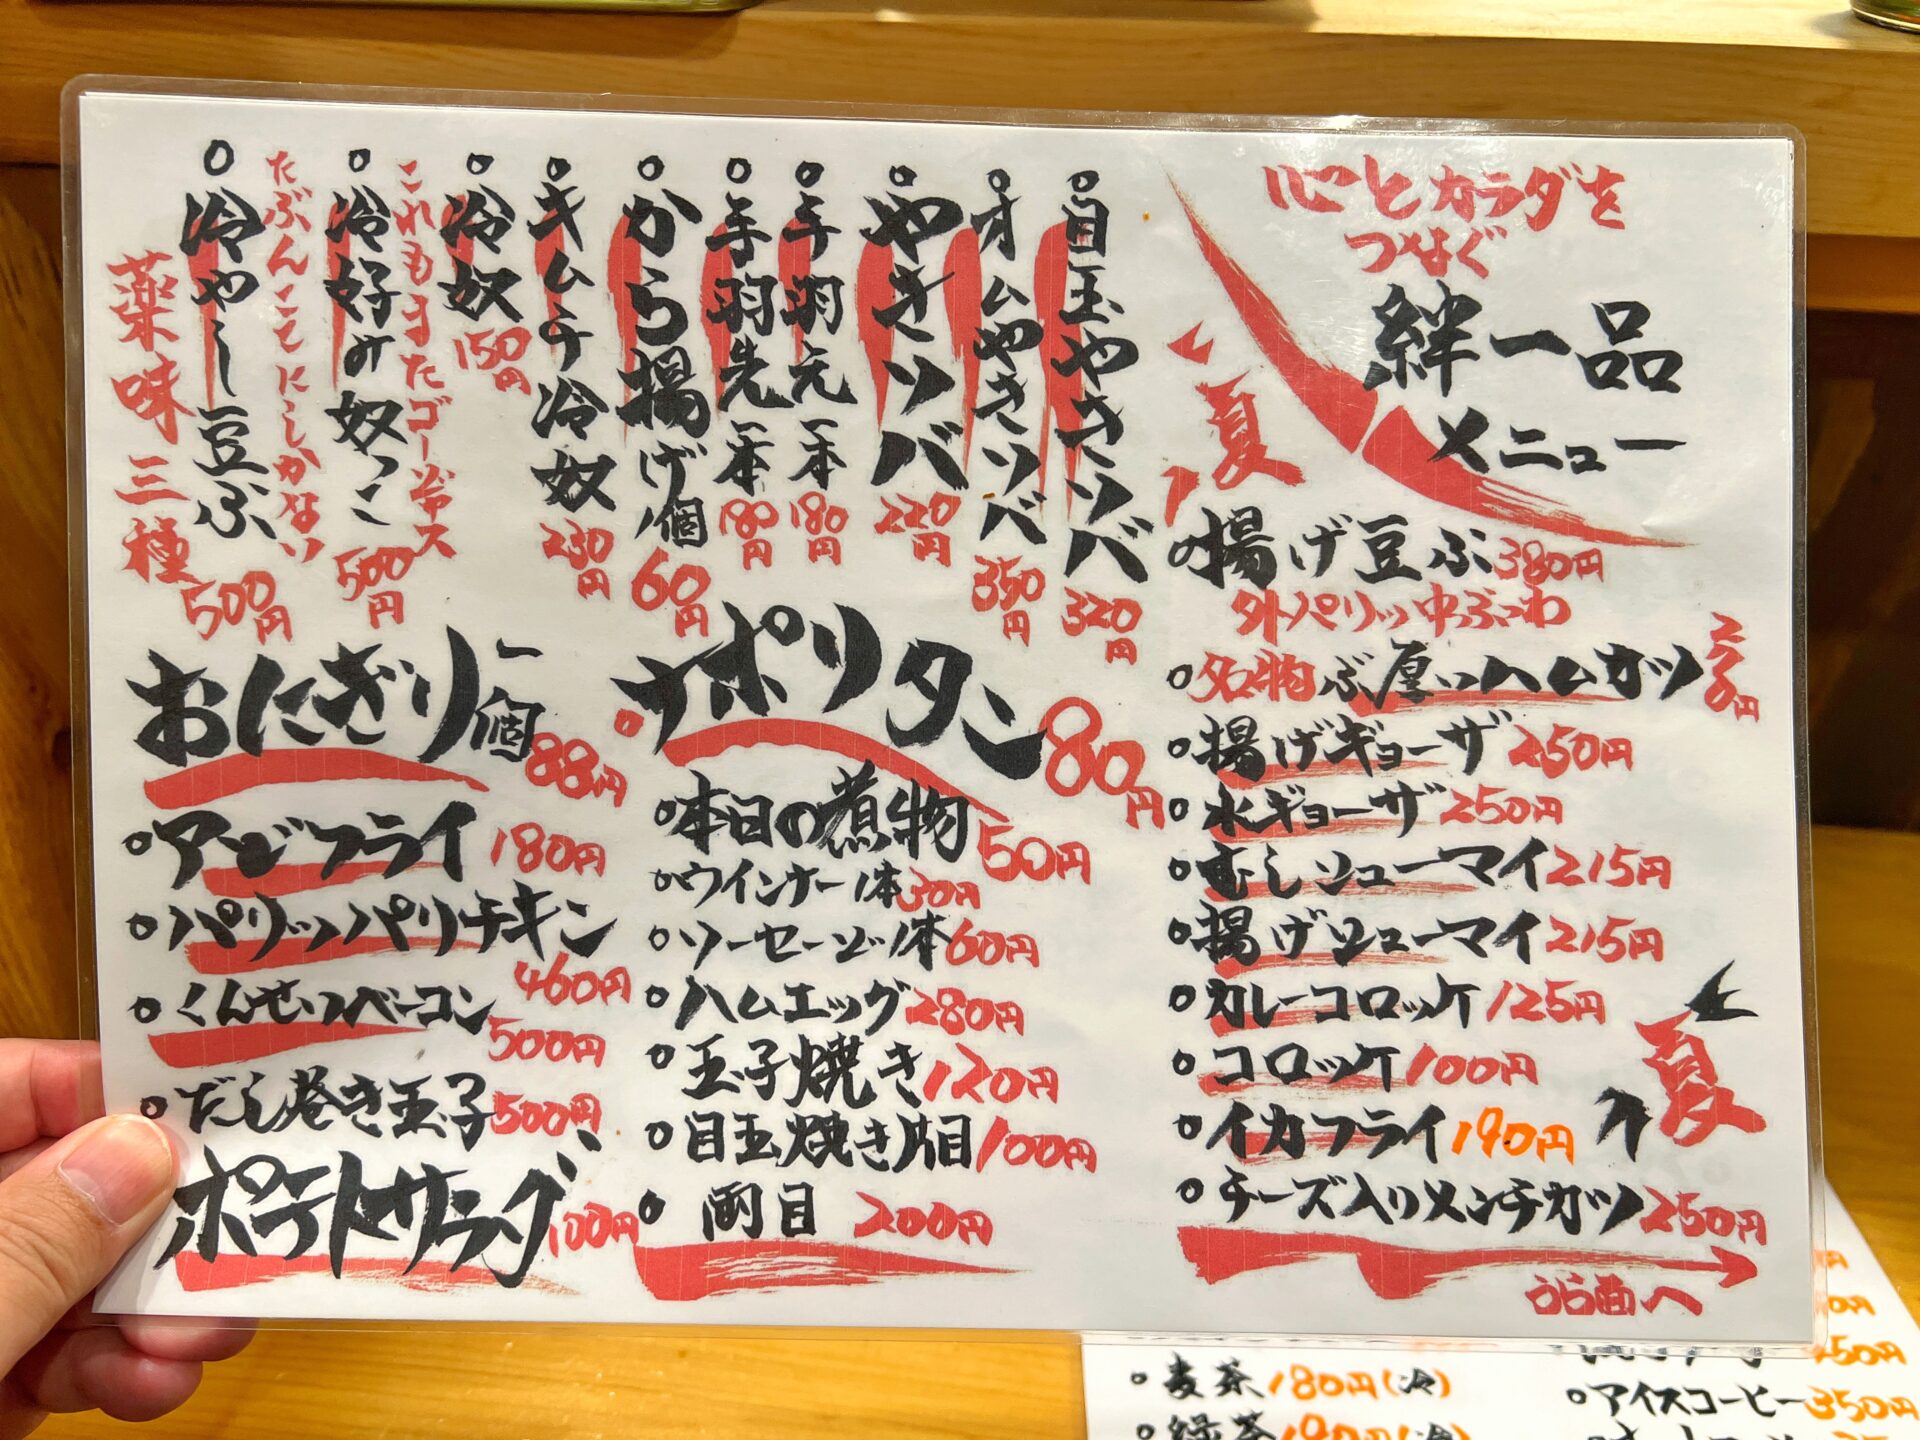 心とカラダを
つなぐ
絆一品
メニュー
夏
揚げ豆ふ380円
外パリッ中ぶっわ
名物ぶ厚いハムカツ
揚げギョーザ250円
水ギョーザ250円
むしシューマイ215円
揚げシューマイ215円
カレーコロッケ125円
コロッケ100円
イカフライ190円
夏
チーズ入りメンチカツ250円
うら面へ
目玉やきソバ320円
オムやきソバ350円
やきソバ220円
手羽元一本180円
手羽先一本180円
から揚げ1個60円
キムチ冷奴230円
冷奴150円
これもまたゴージャス
冷好み奴っこ500円
たぶんここにしかない
冷やし豆ふ500円
薬味三種
ナポリタン80円
本日の煮物50円
ウインナー1本30円
ソーセージ1本60円
ハムエッグ280円
玉子焼き120円
目玉焼き片目100円
両目200円
おにぎり一個88円
アジフライ180円
パリッパリチキン460円
くんせいベーコン500円
だし巻き玉子500円
ポテトサラダ100円
麦茶180円(冷)
緑茶190円(冷)
250円
アイスコーヒー350円